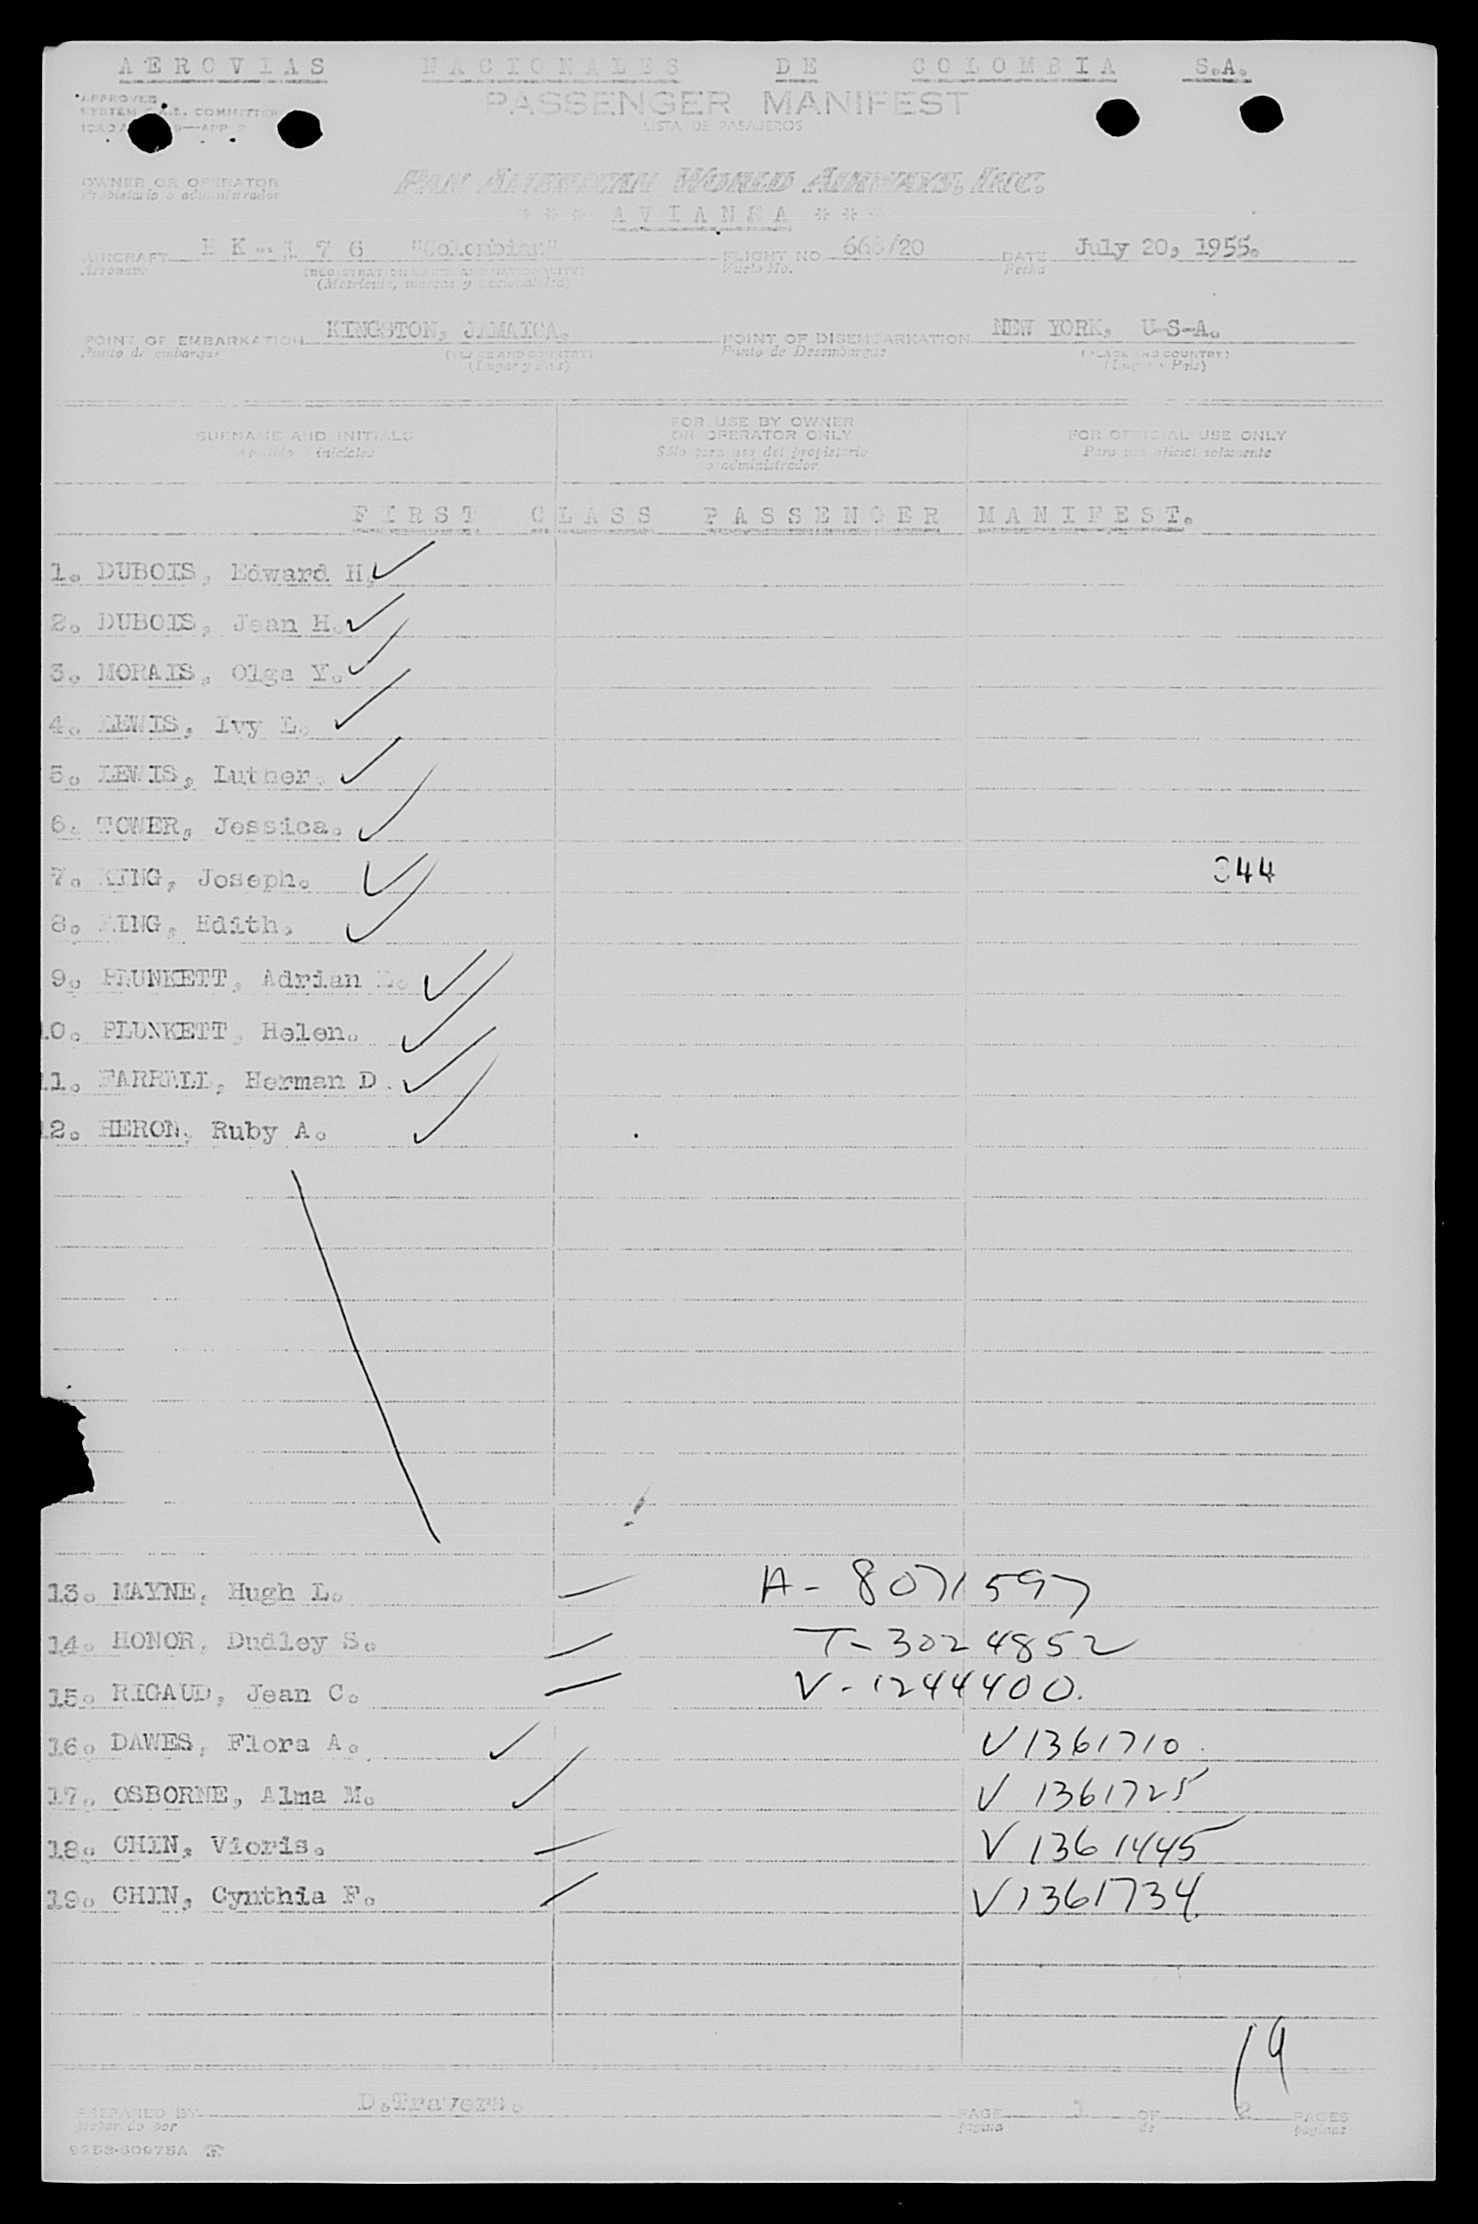 AEROVIAS NACIONALES DE COLOMBIA S.A.
PASSENGER MANIFEST
LISTA DE PASAJEROS
APPROVED
OWNER OR OPERATOR
Propietario o administrador
PAN AMERICAN WORLD AIRWAYS, INC.
* * * AVIANCA * * *
AIRCRAFT HK-176 "Colombian" FLIGHT NO 668/20 DATE July 20, 1955.
Aeronave Vuelo No. Fecha
(Matrícula, marcas y nacionalidad)
POINT OF EMBARKATION KINGSTON, JAMAICA. POINT OF DISEMBARKATION NEW YORK, U-S-A.
Punto de embarque (PLACE AND COUNTRY) Punto de Desembarque (PLACE AND COUNTRY)
(Lugar y País) (Lugar y País)
SURNAME AND INITIALS
Apellido e iniciales
FOR USE BY OWNER
OR OPERATOR ONLY
Sólo para uso del propietario
o administrador
FOR OFFICIAL USE ONLY
Para uso oficial solamente
FIRST CLASS PASSENGER MANIFEST.
1. DUBOIS, Edward H.
2. DUBOIS, Jean H.
3. MORAIS, Olga Y.
4. LEWIS, Ivy L.
5. LEWIS, Luther.
6. TOWER, Jessica.
7. KING, Joseph. 344
8. KING, Edith.
9. PLUNKETT, Adrian
10. PLUNKETT, Helen.
11. FARRELL, Herman D.
12. HERON, Ruby A.
13. MAYNE, Hugh L. A-8071597
14. HONOR, Dudley S. T-3024852
15. RIGAUD, Jean C. V-1244400.
16. DAWES, Flora A. V1361710.
17. OSBORNE, Alma M. V 1361725
18. CHIN, Vioris. V 1361445
19. CHIN, Cynthia F. V1361734.
19
PREPARED BY D.Travers. PAGE 1 OF 2 PAGES
página de páginas